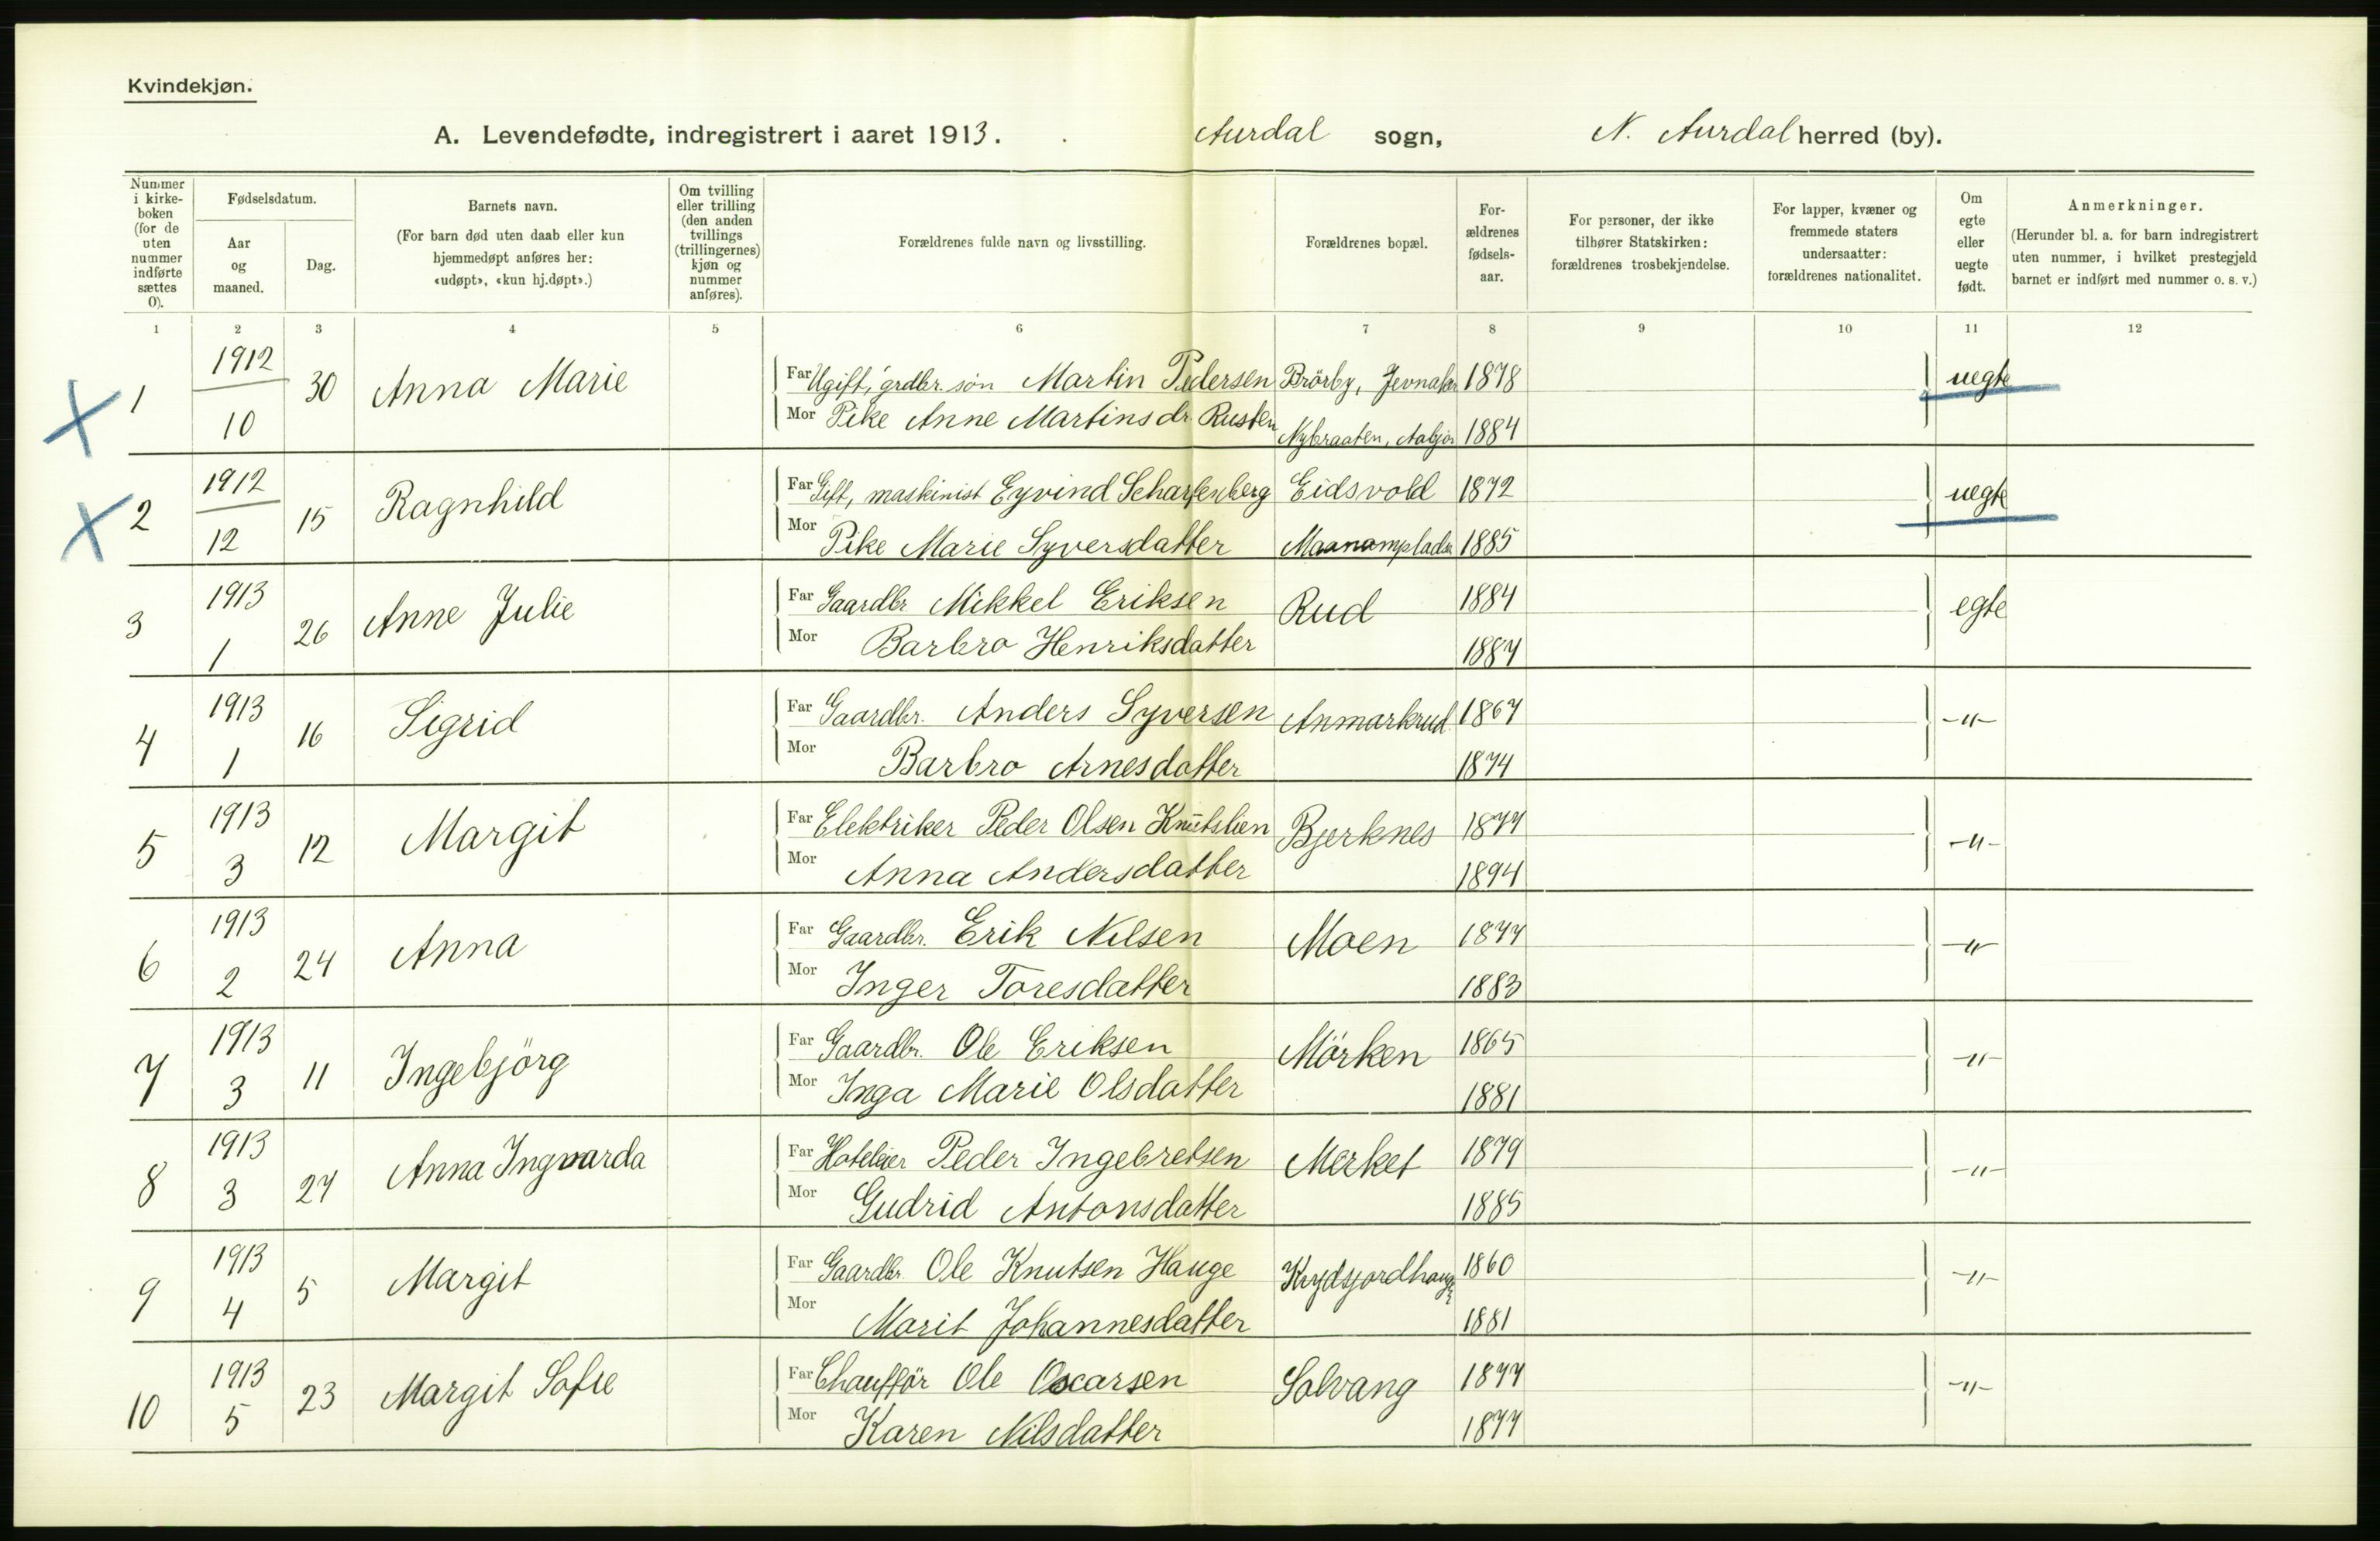 Kvindekjøn.
A. Levendefødte, indregistrert i aaret 1913. Aurdal sogn, N. Aurdal herred (by).
Nummer i kirke-boken (for de uten nummer indførte sættes 0).
Fødselsdatum.
Aar og maaned.
Dag.
Barnets navn.
(For barn død uten daab eller kun hjemmedøpt anføres her: «udøpt», «kun hj.døpt».)
Om tvilling eller trilling (den anden tvillings (trillingernes) kjøn og nummer anføres).
Forældrenes fulde navn og livsstilling.
Forældrenes bopæl.
For-ældrenes fødsels-aar.
For personer, der ikke tilhører Statskirken: forældrenes trosbekjendelse.
For lapper, kvæner og fremmede staters undersaatter: forældrenes nationalitet.
Om egte eller uegte født.
Anmerkninger.
(Herunder bl. a. for barn indregistrert uten nummer, i hvilket prestegjeld barnet er indført med nummer o. s. v.)
1 2 3 4 5 6 7 8 9 10 11 12
1 1912 10 30 Anna Marie
Far Ugift, grdbr. søn Martin Pedersen Brörby, Jevnaker 1878 uegte
Mor Pike Anne Martinsdr. Rusten Nybraaten, Aabjør 1884
2 1912 12 15 Ragnhild
Far Gift, maskinist Eyvind Scharfenberg Eidsvold 1872 uegte
Mor Pike Marie Syversdatter 1885
3 1913 1 26 Anne Julie
Far Gaardbr Mikkel Eriksen Rud 1884 egte
Mor Barbro Henriksdatter 1887
4 1913 1 16 Sigrid
Far Gaardbr. Anders Syversen Anmarkrud 1867 -"-
Mor Barbro Arnesdatter 1874
5 1913 3 12 Margit
Far Elektriker Peder Olsen Knutslien Bjerknes 1877 -"-
Mor Anna Andersdatter 1894
6 1913 2 24 Anna
Far Gaardbr. Erik Nilsen Moen 1877 -"-
Mor Inger Toresdatter 1883
7 1913 3 11 Ingebjörg
Far Gaardbr. Ole Eriksen Mörken 1865 -"-
Mor Inga Marie Olsdatter 1881
8 1913 3 27 Anna Ingvarda
Far Hoteleier Peder Ingebretsen Merket 1879 -"-
Mor Gudrid Antonsdatter 1885
9 1913 4 5 Margit
Far Gaardbr. Ole Knutsen Hauge 1860 -"-
Mor Marit Johannesdatter 1881
10 1913 5 23 Margit Sofie
Far Chaufför Ole Oscarsen Solvang 1877 -"-
Mor Karen Nilsdatter 1877